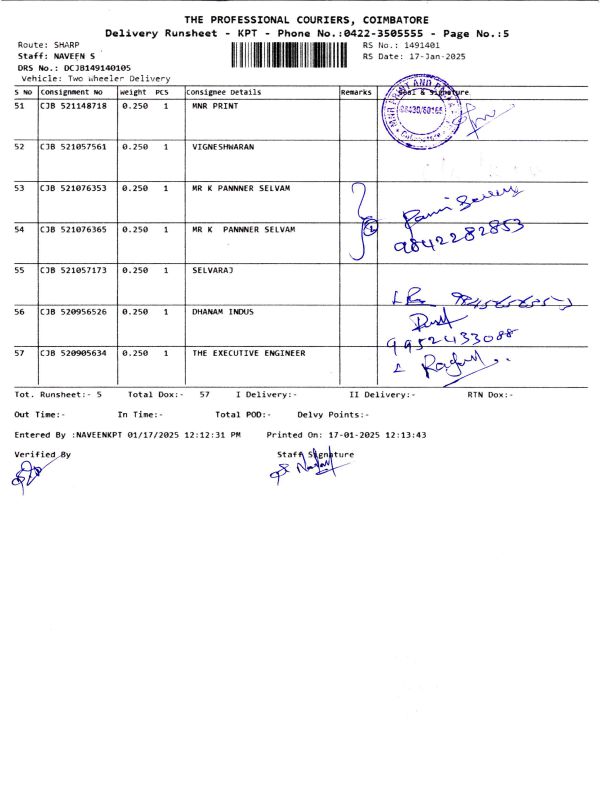 THE PROFESSIONAL COURIERS, COIMBATORE
Delivery Runsheet - KPT - Phone No.:0422-3505555 - Page No.:5
Route: SHARP
Staff: NAVEEN S
DRS No.: DCJB149140105
Vehicle: Two Wheeler Delivery
RS No.: 1491401
RS Date: 17-Jan-2025
S No Consignment No Weight PCS Consignee Details Remarks Seal & Signature
51 CJB 521148718 0.250 1 MNR PRINT
52 CJB 521057561 0.250 1 VIGNESHWARAN
53 CJB 521076353 0.250 1 MR K PANNNER SELVAM
54 CJB 521076365 0.250 1 MR K PANNNER SELVAM
9842282853
55 CJB 521057173 0.250 1 SELVARAJ
56 CJB 520956526 0.250 1 DHANAM INDUS
9952433088
57 CJB 520905634 0.250 1 THE EXECUTIVE ENGINEER
Tot. Runsheet:- 5 Total Dox:- 57 I Delivery:- II Delivery:- RTN Dox:-
Out Time:- In Time:- Total POD:- Delvy Points:-
Entered By :NAVEENKPT 01/17/2025 12:12:31 PM Printed On: 17-01-2025 12:13:43
Verified By Staff Signature